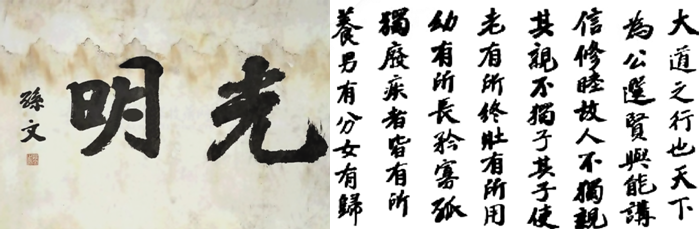 光明
孫文
大道之行也天下
為公選賢與能講
信修睦故人不獨親
其親不獨子其子使
老有所終壯有所用
幼有所長矜寡孤
獨廢疾者皆有所
養男有分女有歸